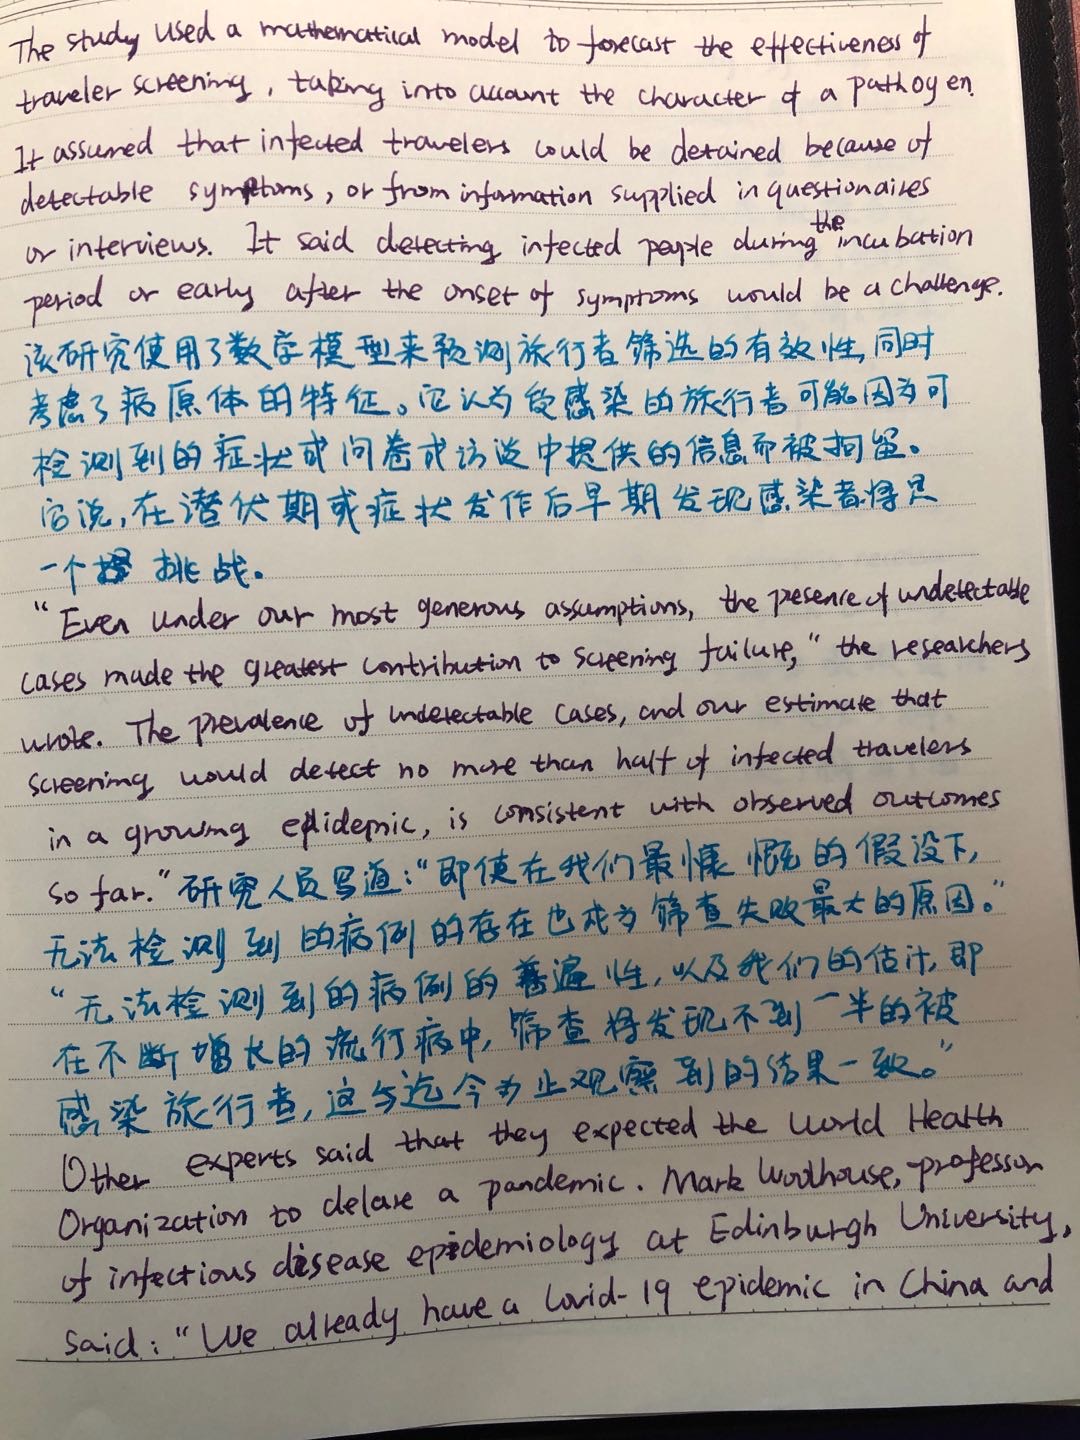 The study used a mathematical model to forecast the effectiveness of
traveler screening, taking into account the character of a pathogen.
It assumed that infected travelers could be detained because of
detectable symptoms, or from information supplied in questionaires
or interviews. It said detecting infected people during the incubation
period or early after the onset of symptoms would be a challenge.
该研究使用了数学模型来预测旅行者筛选的有效性,同时
考虑了病原体的特征。它认为受感染的旅行者可能因为可
检测到的症状或问卷或访谈中提供的信息而被拘留。
它说,在潜伏期或症状发作后早期发现感染者将是
一个 挑战。
"Even under our most generous assumptions, the presence of undetectable
cases made the greatest contribution to screening failure," the researchers
wrote. The prevalence of undetectable cases, and our estimate that
screening would detect no more than half of infected travelers
in a growing epidemic, is consistent with observed outcomes
so far." 研究人员写道:"即使在我们最慷慨的假设下,
无法检测到的病例的存在也成为筛查失败最大的原因。"
"无法检测到的病例的普遍性,以及我们的估计,即
在不断增长的流行病中,筛查将发现不到一半的被
感染旅行者,这与迄今为止观察到的结果一致。"
Other experts said that they expected the World Health
Organization to delare a pandemic. Mark Woolhouse, professor
of infectious disease epidemiology at Edinburgh University,
said: "We already have a Covid-19 epidemic in China and